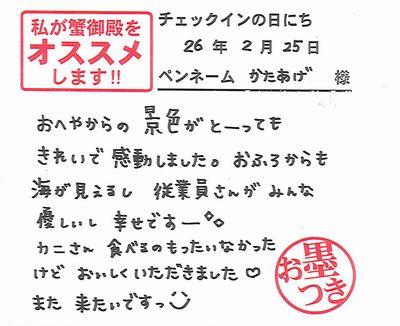 私が蟹御殿を
オススメ
します!!
チェックインの日にち
26年2月25日
ペンネーム かたあげ 様
おへやからの景色がとーっても
きれいで感動しました。おふろからも
海が見えるし 従業員さんがみんな
優しいし 幸せですー
カニさん 食べるのもったいなかった
けど おいしくいただきました♡
また 来たいですっ
お墨つき